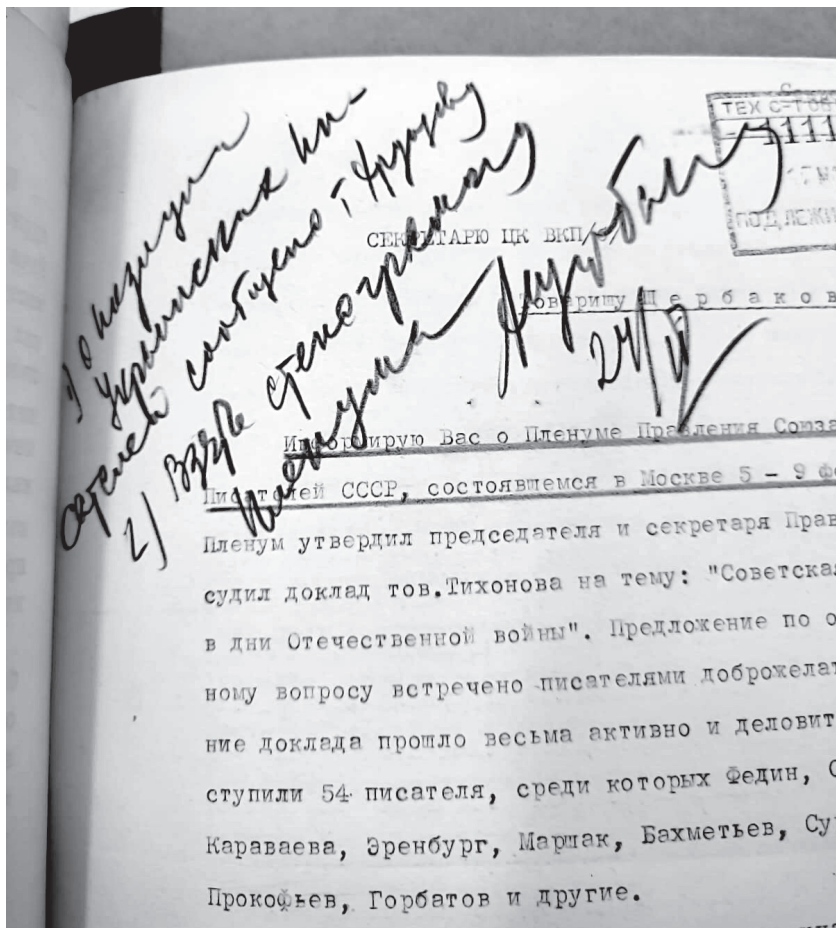 1) О позиции
Украинских пи-
сателей сообщено т.
2) Взять стенограмму
Пленума
24/II
ТЕХ С-Т ОБ
1111
ПОДЛЕЖИ
СЕКРЕТАРЮ ЦК ВКП/б/
Товарищу Щ е р б а к о в
Информирую Вас о Пленуме Правления Союза
Писателей СССР, состоявшемся в Москве 5 - 9 фе
Пленум утвердил председателя и секретаря Прав
судил доклад тов.Тихонова на тему: "Советская
в дни Отечественной войны". Предложение по о
ному вопросу встречено писателями доброжелат
ние доклада прошло весьма активно и деловит
ступили 54 писателя, среди которых Федин, С
Караваева, Эренбург, Маршак, Бахметьев, Су
Прокофьев, Горбатов и другие.